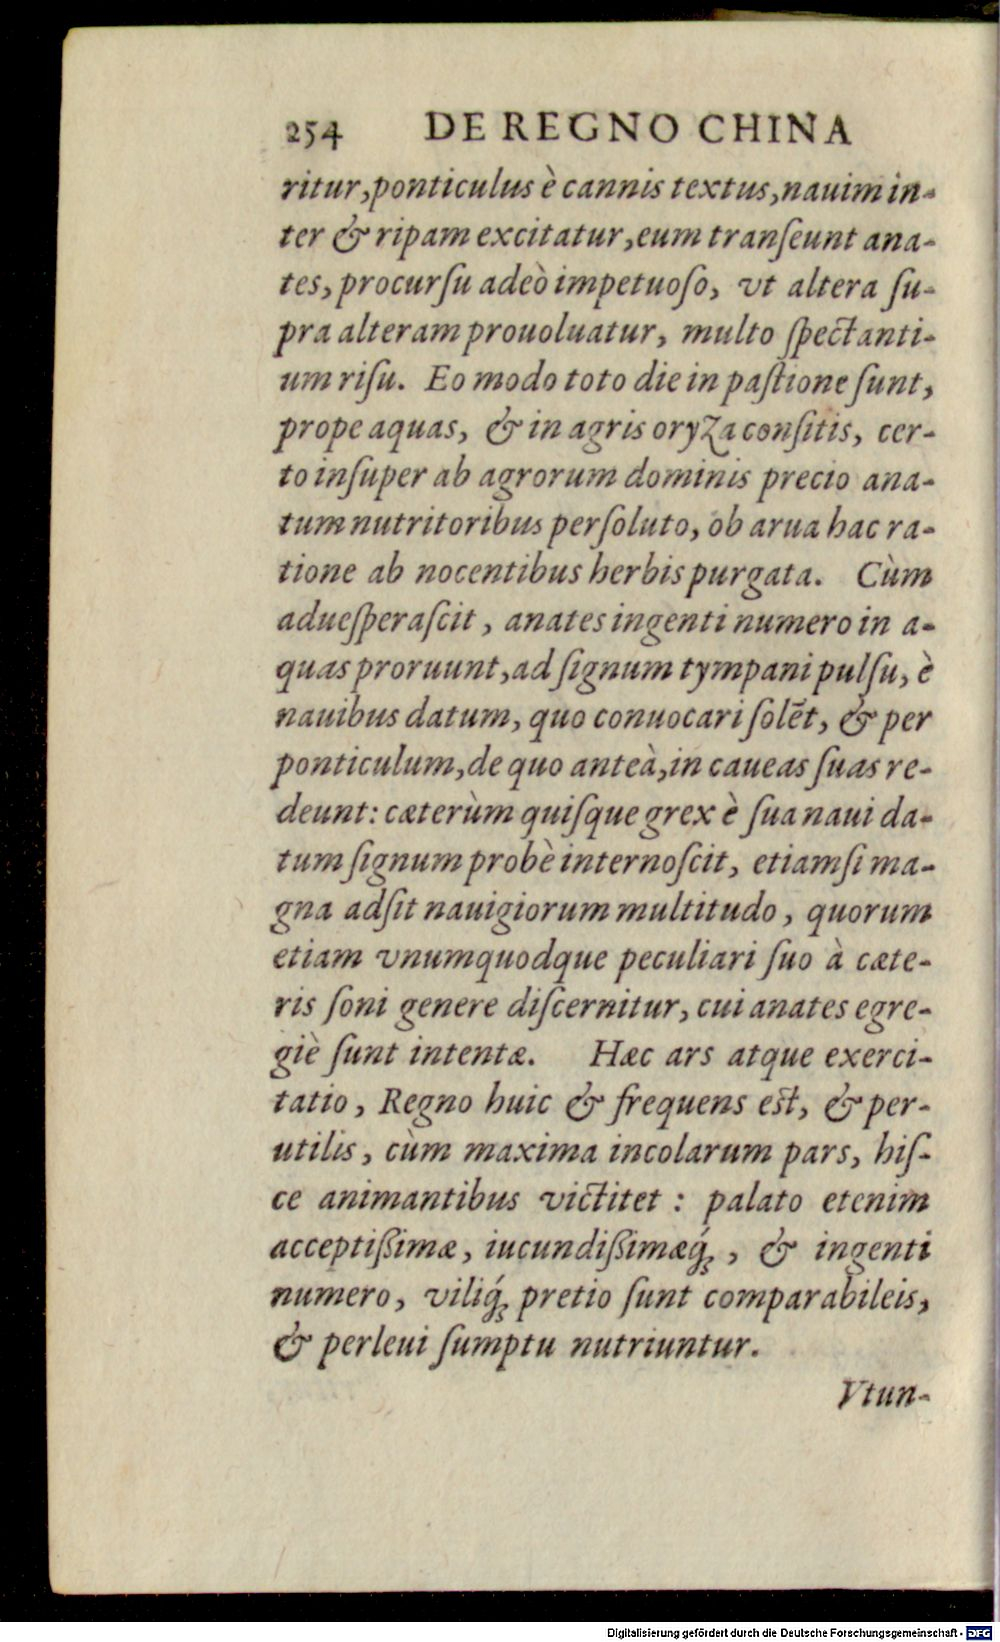 254 DE REGNO CHINA
ritur, ponticulus è cannis textus, nauim in-
ter & ripam excitatur, eum tranſeunt ana-
tes, procurſu adeò impetuoſo, vt altera ſu-
pra alteram prouoluatur, multo ſpectanti-
um riſu. Eo modo toto die in paſtione ſunt,
prope aquas, & in agris oryza conſitis, cer-
to inſuper ab agrorum dominis precio ana-
tum nutritoribus perſoluto, ob arua hac ra-
tione ab nocentibus herbis purgata. Cùm
adueſperaſcit, anates ingenti numero in a-
quas proruunt, ad ſignum tympani pulſu, è
nauibus datum, quo conuocari ſolẽt, & per
ponticulum, de quo anteà, in caueas ſuas re-
deunt: cæterùm quiſque grex è ſua naui da-
tum ſignum probè internoſcit, etiamſi ma-
gna adſit nauigiorum multitudo, quorum
etiam vnumquodque peculiari ſuo à cæte-
ris ſoni genere diſcernitur, cui anates egre-
giè ſunt intentæ. Hæc ars atque exerci-
tatio, Regno huic & frequens eſt, & per-
utilis, cùm maxima incolarum pars, hiſ-
ce animantibus victitet: palato etenim
acceptißimæ, iucundißimæq́;, & ingenti
numero, viliq́; pretio ſunt comparabileis,
& perleui ſumptu nutriuntur.
Vtun-
Digitalisierung gefördert durch die Deutsche Forschungsgemeinschaft - DFG